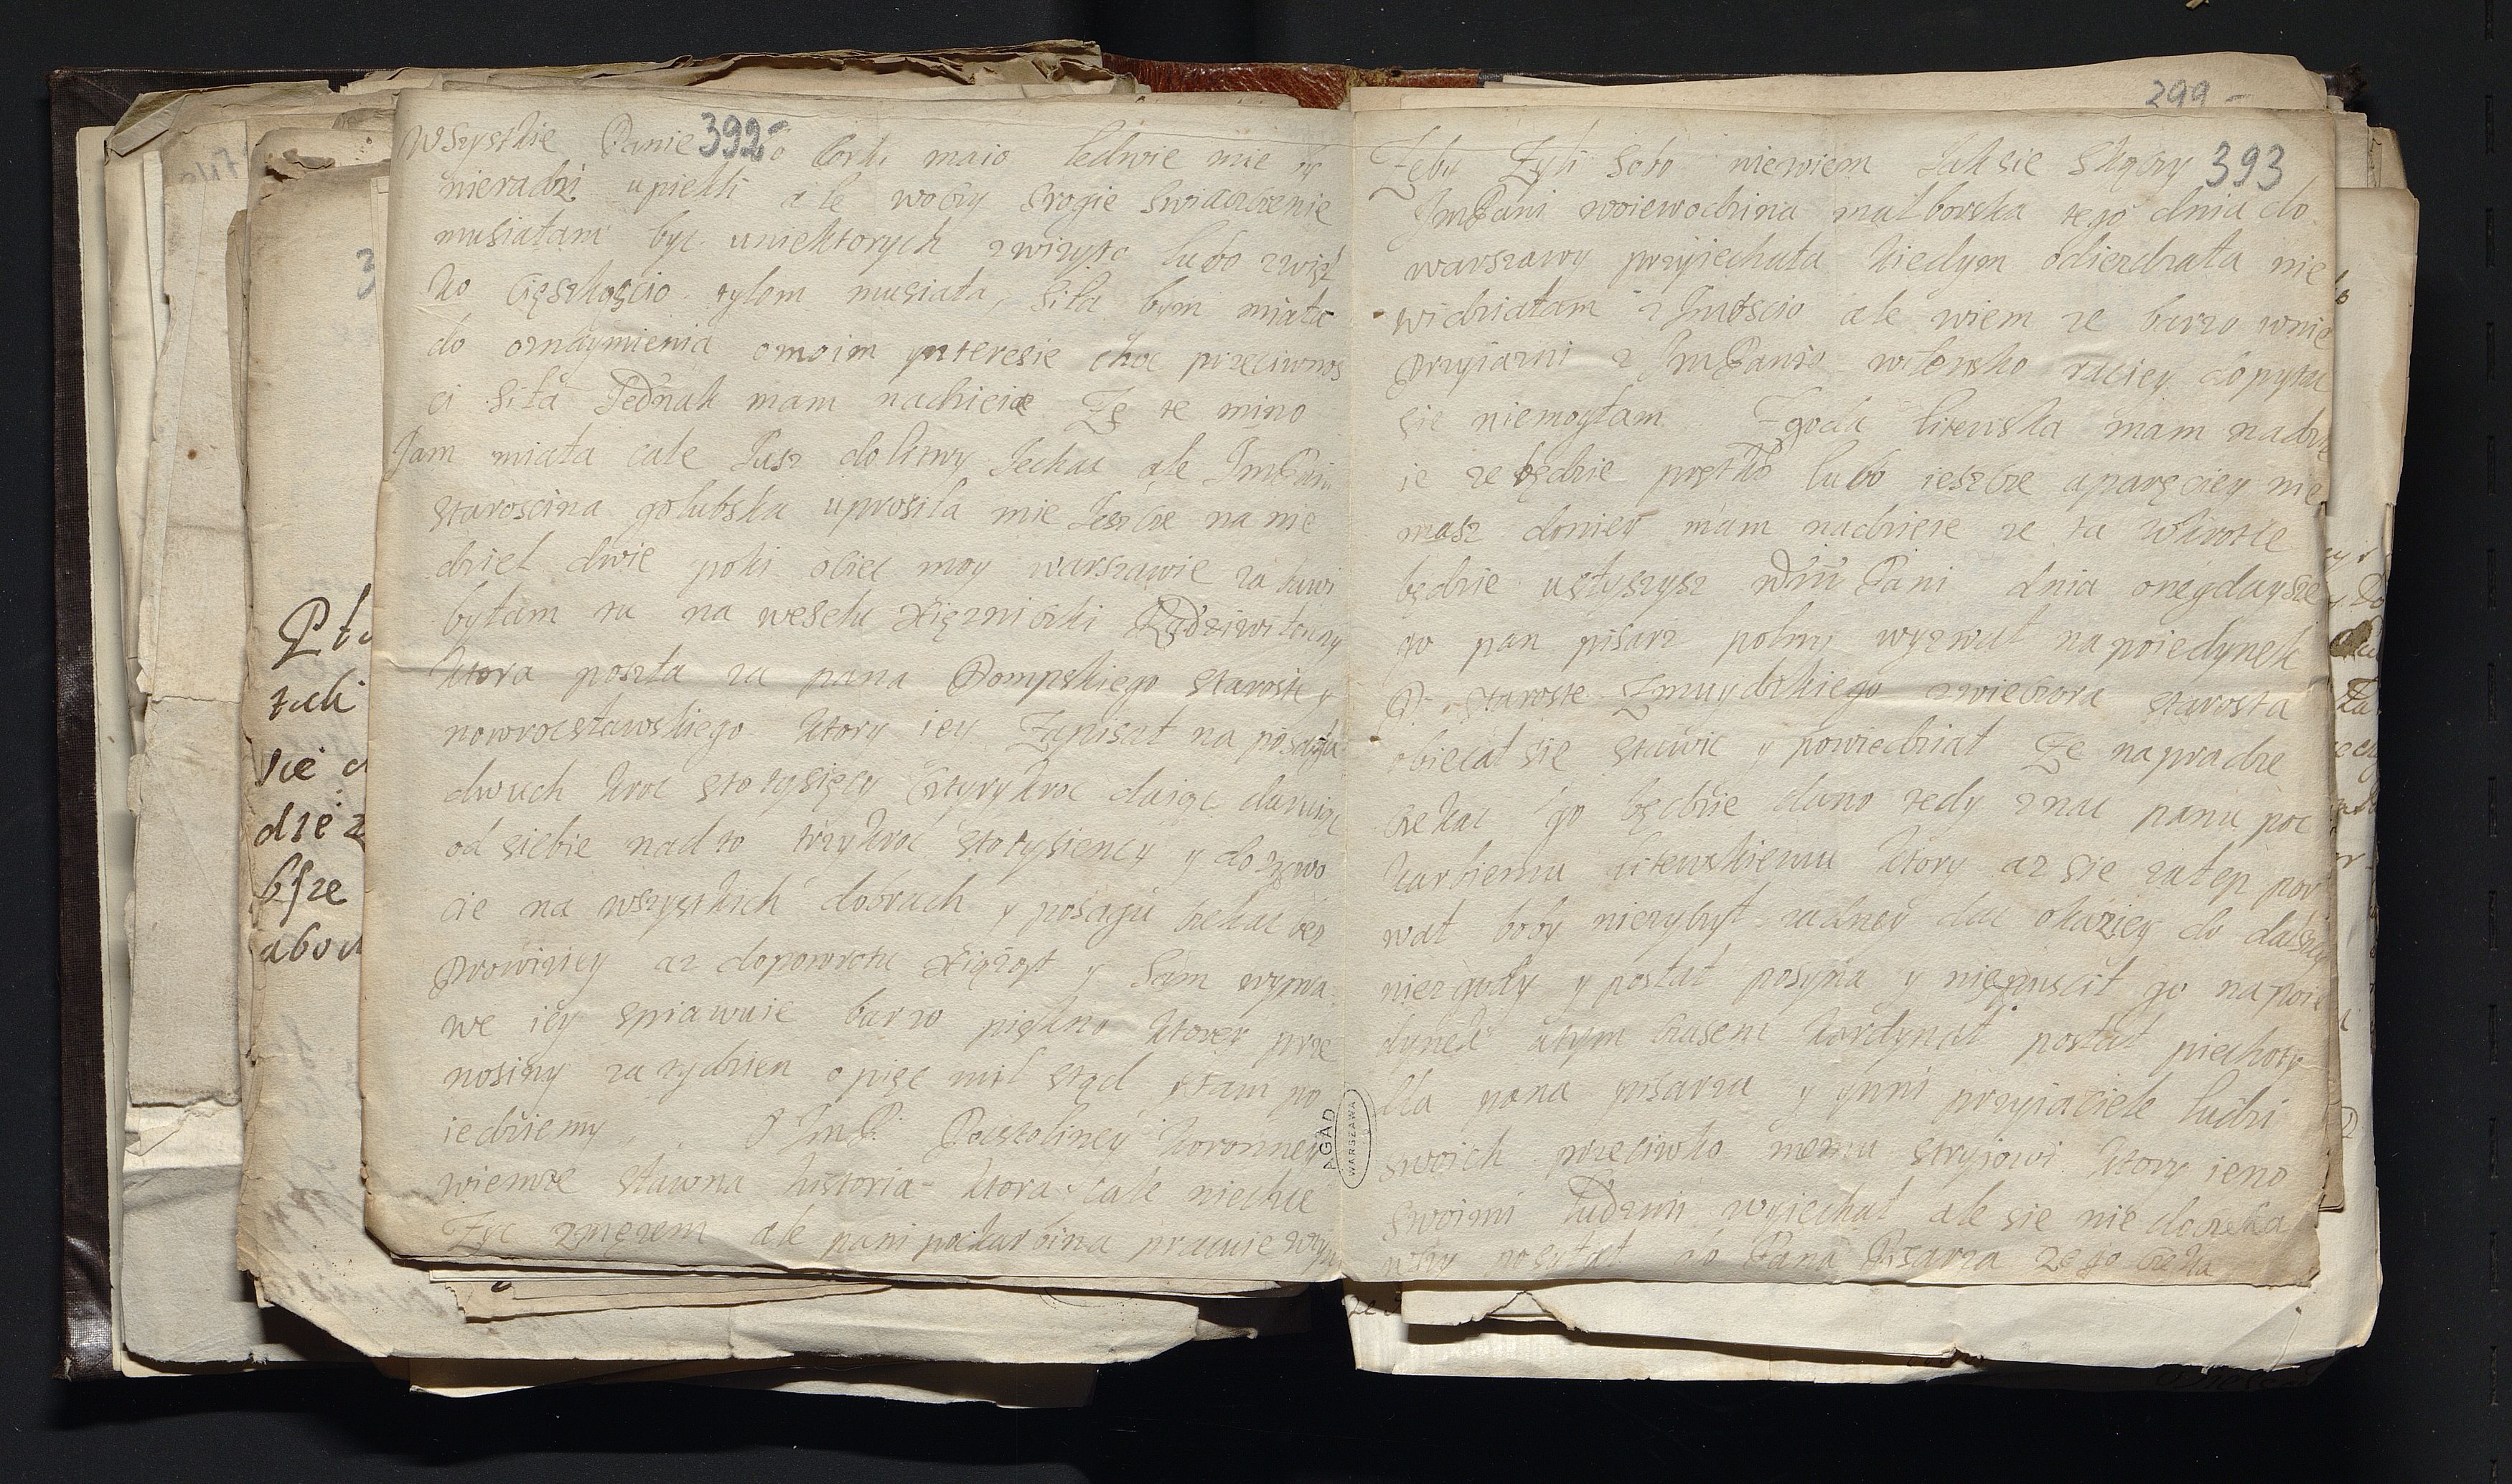 392
Wszystkie Panie co corki maio ledwie mie by
nieradzi upiekli ale woczy srogie swiadczenie
musiałam byc uniektorych zwizyto lubo zwiel
ko cięszkoscio tylom musiała, siła bym miała
do oznaymienia omoim ynteresie choc przeciwnos
ci siła Jednak mam nadzieie Ze te mino
Jam miała cale Jusz do litwy Jechac ale ImPani
staroscina golubska uprosiła mie Jeszcze na nie
dziel dwie poki ociec moy warszawie za bawi
byłam tu na weselu xięzniczki Radziwiłowny
ktora poszła za pana Dompskiego staroste
nowrocstawskiego ktory iey Zapisał na posagu
dwuch kroc stotysięcy cztyrykroc daiąc daruiąc
od siebie nad to trzykroc stotysiency y dozywo
cie na wszystkich dobrach y posagu czekac bez
Prowiziey az dopowrotu xiążąt y sam wypra
we iey sprawuie barzo piękno ktorey prze
nosiny za tydzien o pięc mil stąd ytam po
iedziemy. O ImP: Postoliney koronney
wiemze sławna historia ktora cale niechce
Zyc zmęzem ale pani pockarbina pracuie
299 -
393
Zeby Zyli sobo niewiem Jak sie skączy
ImPani woiewodzina malborska tego dnia do
warszawy przyiechała kiedym odiezdzała nie
widziałam z Imoscio ale wiem ze barzo wnie
Przyiazni z ImPanio wilensko raciey dopytac
sie niemogłam. Zgoda litewska mam nadzie
ie ze będzie prętko lubo ieszcze aparęciey nie
masz doniey mam nadzieie ze ta wkrotce
będzie usłyszysz Pani dnia onegdaysze
go pan pisarz polny wyzwał napoiedynek
P. staroste Zmuydzkiego zwieczora starosta
obiecał sie stawic y powiedział Ze napradze
czekac go będzie dano tedy znac panu poc
karbiemu litewskiemu ktory az sie zatep por
wał boby niezybył zadney dac okaziey do dalszey
niezgody y posłał posyna y niepuscił go napoie
dynek atym czasem kardynał posłał piechoty
dla pana pisarza y ynni przyiaciele ludzi
swoich przeciwko memu stryiowi ktory ieno
swoimi ludzmi wyiechał ale sie nie doczeka
wszy posyłał do Pana Pisarza ze go czeka
AGAD
WARSZAWA